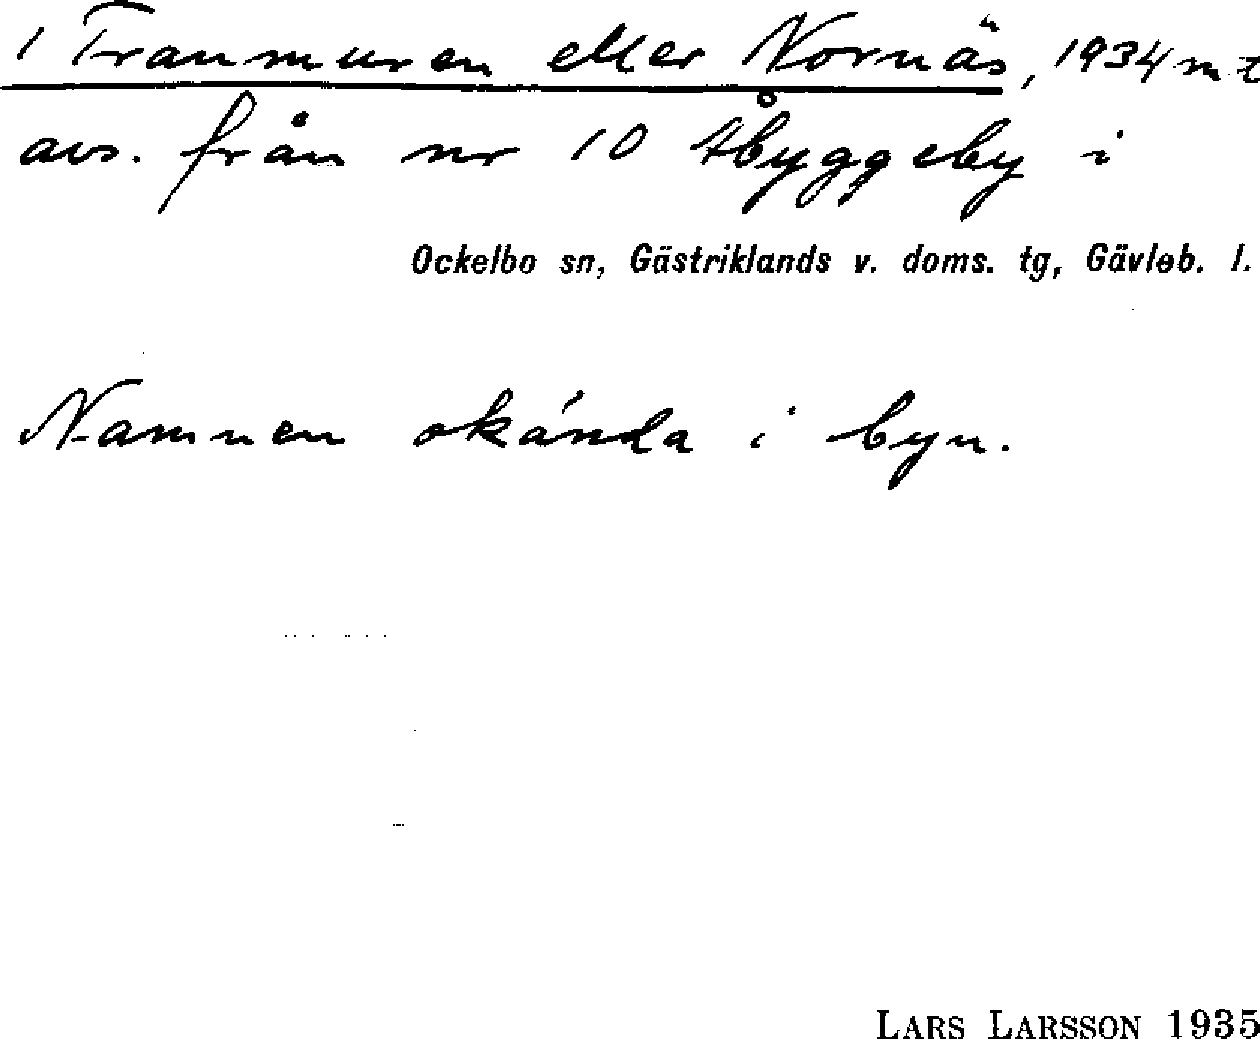 1 Tranmuren eller Nornäs, 1934 mt
avs. från nr 10 Åbyggeby i
Ockelbo sn, Gästriklands v. doms. tg, Gävleb. l.
Namnen okända i byn.
LARS LARSSON 1935